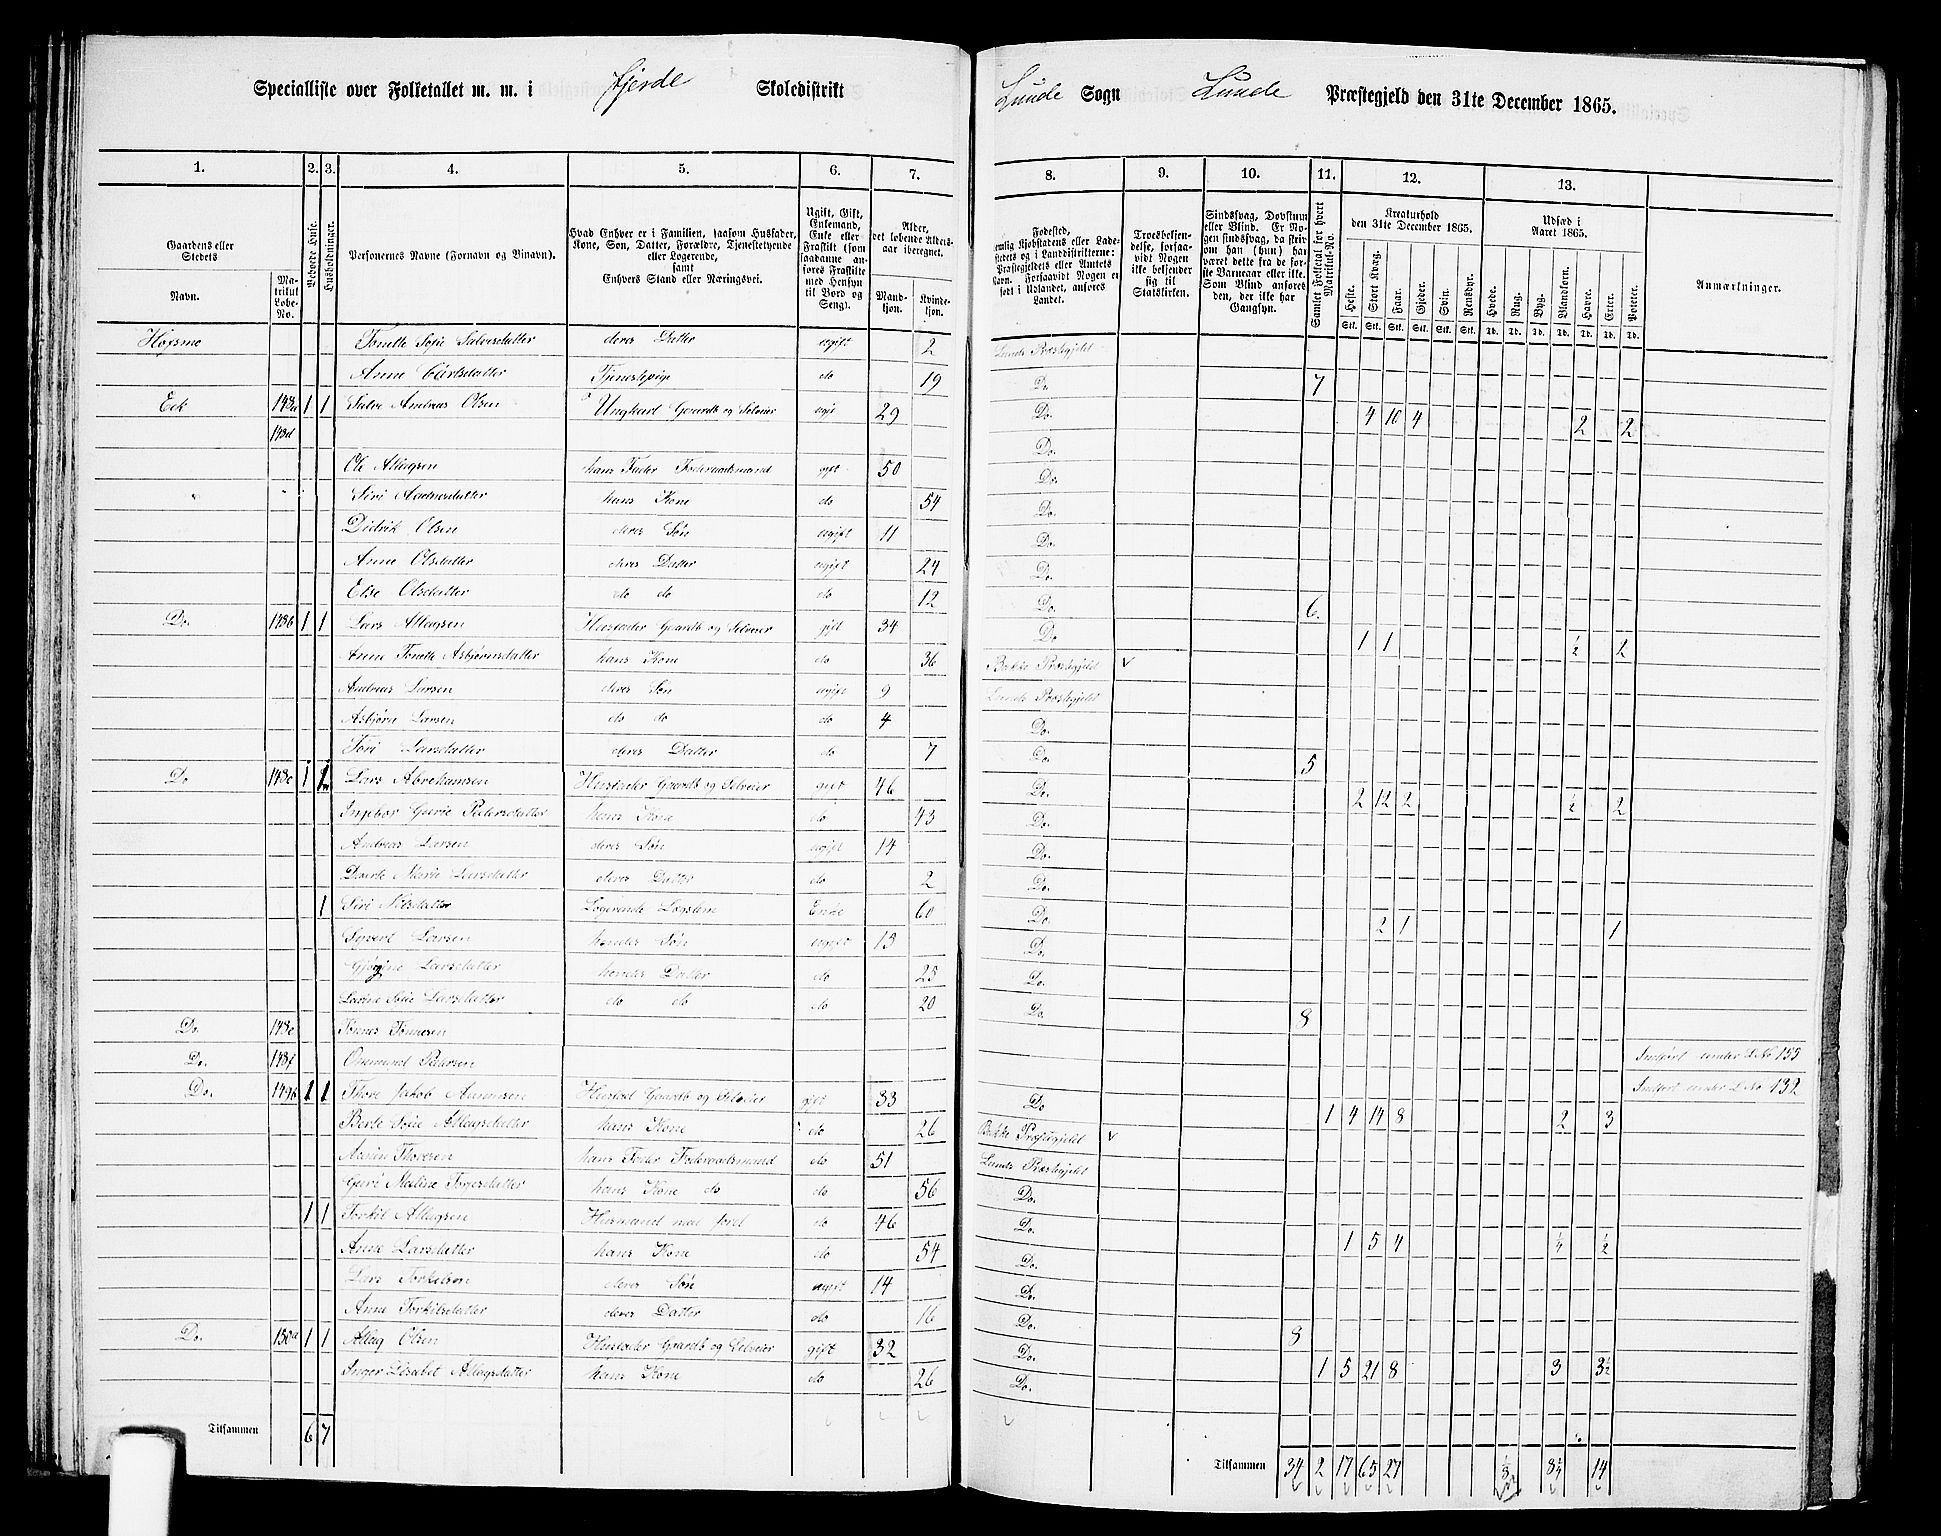 Specialliste over Folketallet m. m. i Fjerde Skoledistrikt Lunde Sogn Lunde Præstegjeld den 31te December 1865.
1. 2. 3. 4. 5. 6. 7. 8. 9. 10. 11. 12. 13.
Gaardens eller Stedets Navn. Matrikul Løbe-No. Beboede Huse. Husholdninger. Personernes Navne (Fornavn og Tilnavn). Hvad Enhver er i Familien, saasom Husfader, Kone, Søn, Datter, Forældre, Tjenestetyende eller Logerende, samt Enhvers Stand eller Næringsvei. Ugift, Gift, Enkemand, Enke eller Fraskilt (som saadanne anføres Fraskilte med Hensyn til Bord og Seng). Alder, det løbende Alders-aar iberegnet. Mandkjøn. Kvindekjøn.
Samlet Folketal for hvert Matrikul-No. Kreaturhold den 31te December 1865. Heste. Stort Kvæg. Faar. Gjeder. Svin. Rensdyr. Udsæd i Aaret 1865. Hvede. Rug. Byg. Blandkorn. Havre. Erter. Poteter. Anmærkninger.
Tonette Sofie Salvesdatter deres Datter ugift 2 Lunde Præstegjeld
Tjenestepige do 19 Do. 7
Eek 1 1 Salve Andreas Olsen Ungkarl Gaardb og Selveier ugift 29 Do. 4 10 4 2 2
Do.
Ole Atlagsen hans Fader Føderaadsmand gift 50 Do.
Siri Aadnesdatter hans Kone do 54 Do.
Didrik Olsen deres Søn ugift 11 Do.
Anne Olsdatter deres Datter ugift 24 Do.
Else Olsdatter do do do 12 Do. 6
Do. 1 1 Lars Atlagsen Husfader Gaardb og Selveier gift 34 Do. 1 1 ½ 2
Anne Tonette Asbjørnsdatter hans Kone do 36 Bakke Præstegjeld
Andreas Larsen deres Søn ugift 9 Lunde Præstegjeld
Asbjørn Larsen do do do 4 Do.
Siri Larsdatter deres Datter do 7 Do. 5
Do 1 1 Lars Abrahamsen Husfader Gaardb og Selveier gift 46 Do. 2 12 2 ½ 2
Ingebor Gurie Pedersdatter hans Kone do 43 Do.
Andreas Larsen deres Søn ugift 14 Do.
Dorte Marie Larsdatter deres Datter do 2 Do.
1 Siri Nilsdatter Logerende Lægslem Enke 60 Do. 2 1 1
Syvert Larsen hendes Søn ugift 13 Do.
Larsdatter hendes Datter do 25 Do.
Lavine Sofie Larsdatter do do do 20 Do. 8
Do. 143e Tønnes Tønnesen Indført under L No 155
Do. 143f Omund Pedersen Indført under L No 132
Do. 1 1 Thore Jakob Aanensen Husfad Gaardb og Selveier gift 33 Do 1 4 14 8 2 3
Berte Sofie Atlagsdatter hans Kone do 26 Bakke Præstegjeld
Aanen Thoresen hans Fader Føderaadsmand do 51 Lunde Præstegjeld
Guri Maline Torjesdatter hans Kone do do 56 Do.
1 1 Torkil Atlagsen Husmand med jord do 46 Do. 1 5 4 ¼ ½
Anne Larsdatter hans Kone do 54 Do.
Lars Torkilsen deres Søn ugift 14 Do.
Anne Torkilsdatter deres Datter do 16 Do. 8
Do. 150a 1 1 Atlag Olsen Husfader Gaardb og Selveier gift 32 Do. 1 5 21 8 3 3½
Inger Elisabet Atlagsdatter hans Kone do 26 Do.
Tilsammen 6 7
Tilsammen 34 2 17 65 27 ⅛ 8¼ 14